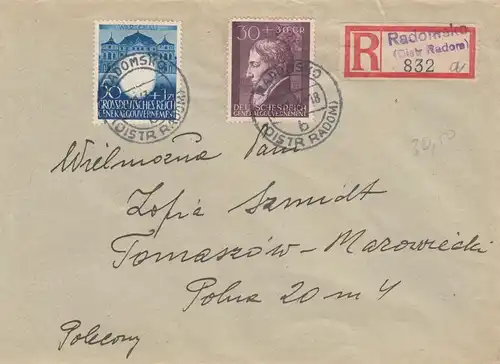 30 + 1 Zł
GROSSDEUTSCHES REICH
GENERALGOUVERNEMENT
30 + 3 zł GR
DEUTSCHES REICH
GENERALGOUVERNEMENT
RADOMSKO
b
(DISTR RADOM)
RADOMSKO
18
b
(DISTR RADOM)
R
Radomsko
(Distr Radom)
832 a
30,00
Wielmożna Pani
Zofia Szmidt
Tomaszów-Mazowiecki
Polna 20 m 4
Polecony